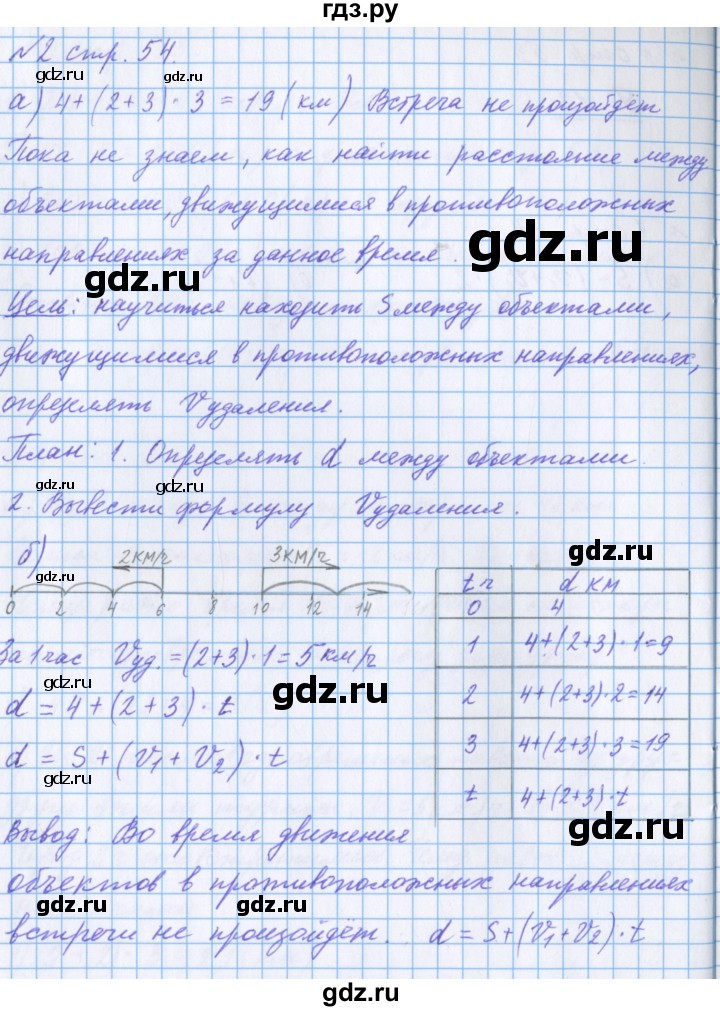 гдз.ру
№2 стр. 54.
gdz.ru
gdz.ru
а) 4+(2+3)·3=19(км) Встреча не произойдёт
Пока не знаем, как найти расстояние между
gdz.ru
gdz.ru
объектами, движущимися в противоположных
направлениях за данное время.
gdz.ru
gdz.ru
Цель: научиться находить S между объектами,
движущимися в противоположных направлениях,
gdz.ru
gdz.ru
определять Vудаления.
План: 1. Определять d между объектами.
gdz.ru
gdz.ru
2. Вывести формулу Vудаления.
б)
2км/ч
3км/ч
gdz.ru
0 2 4 6 8 10 12 14
t ч
d км
0
4
1
4+(2+3)·1=9
2
4+(2+3)·2=14
3
4+(2+3)·3=19
t
4+(2+3)·t
gdz.ru
За 1 час Vуд.=(2+3)·1=5км/ч
gdz.ru
gdz.ru
d=4+(2+3)·t
d=S+(V₁+V₂)·t
gdz.ru
Вывод: Во время движения
объектов в противоположных направлениях
gdz.ru
gdz.ru
встречи не произойдёт. d=S+(V₁+V₂)·t
gdz.ru